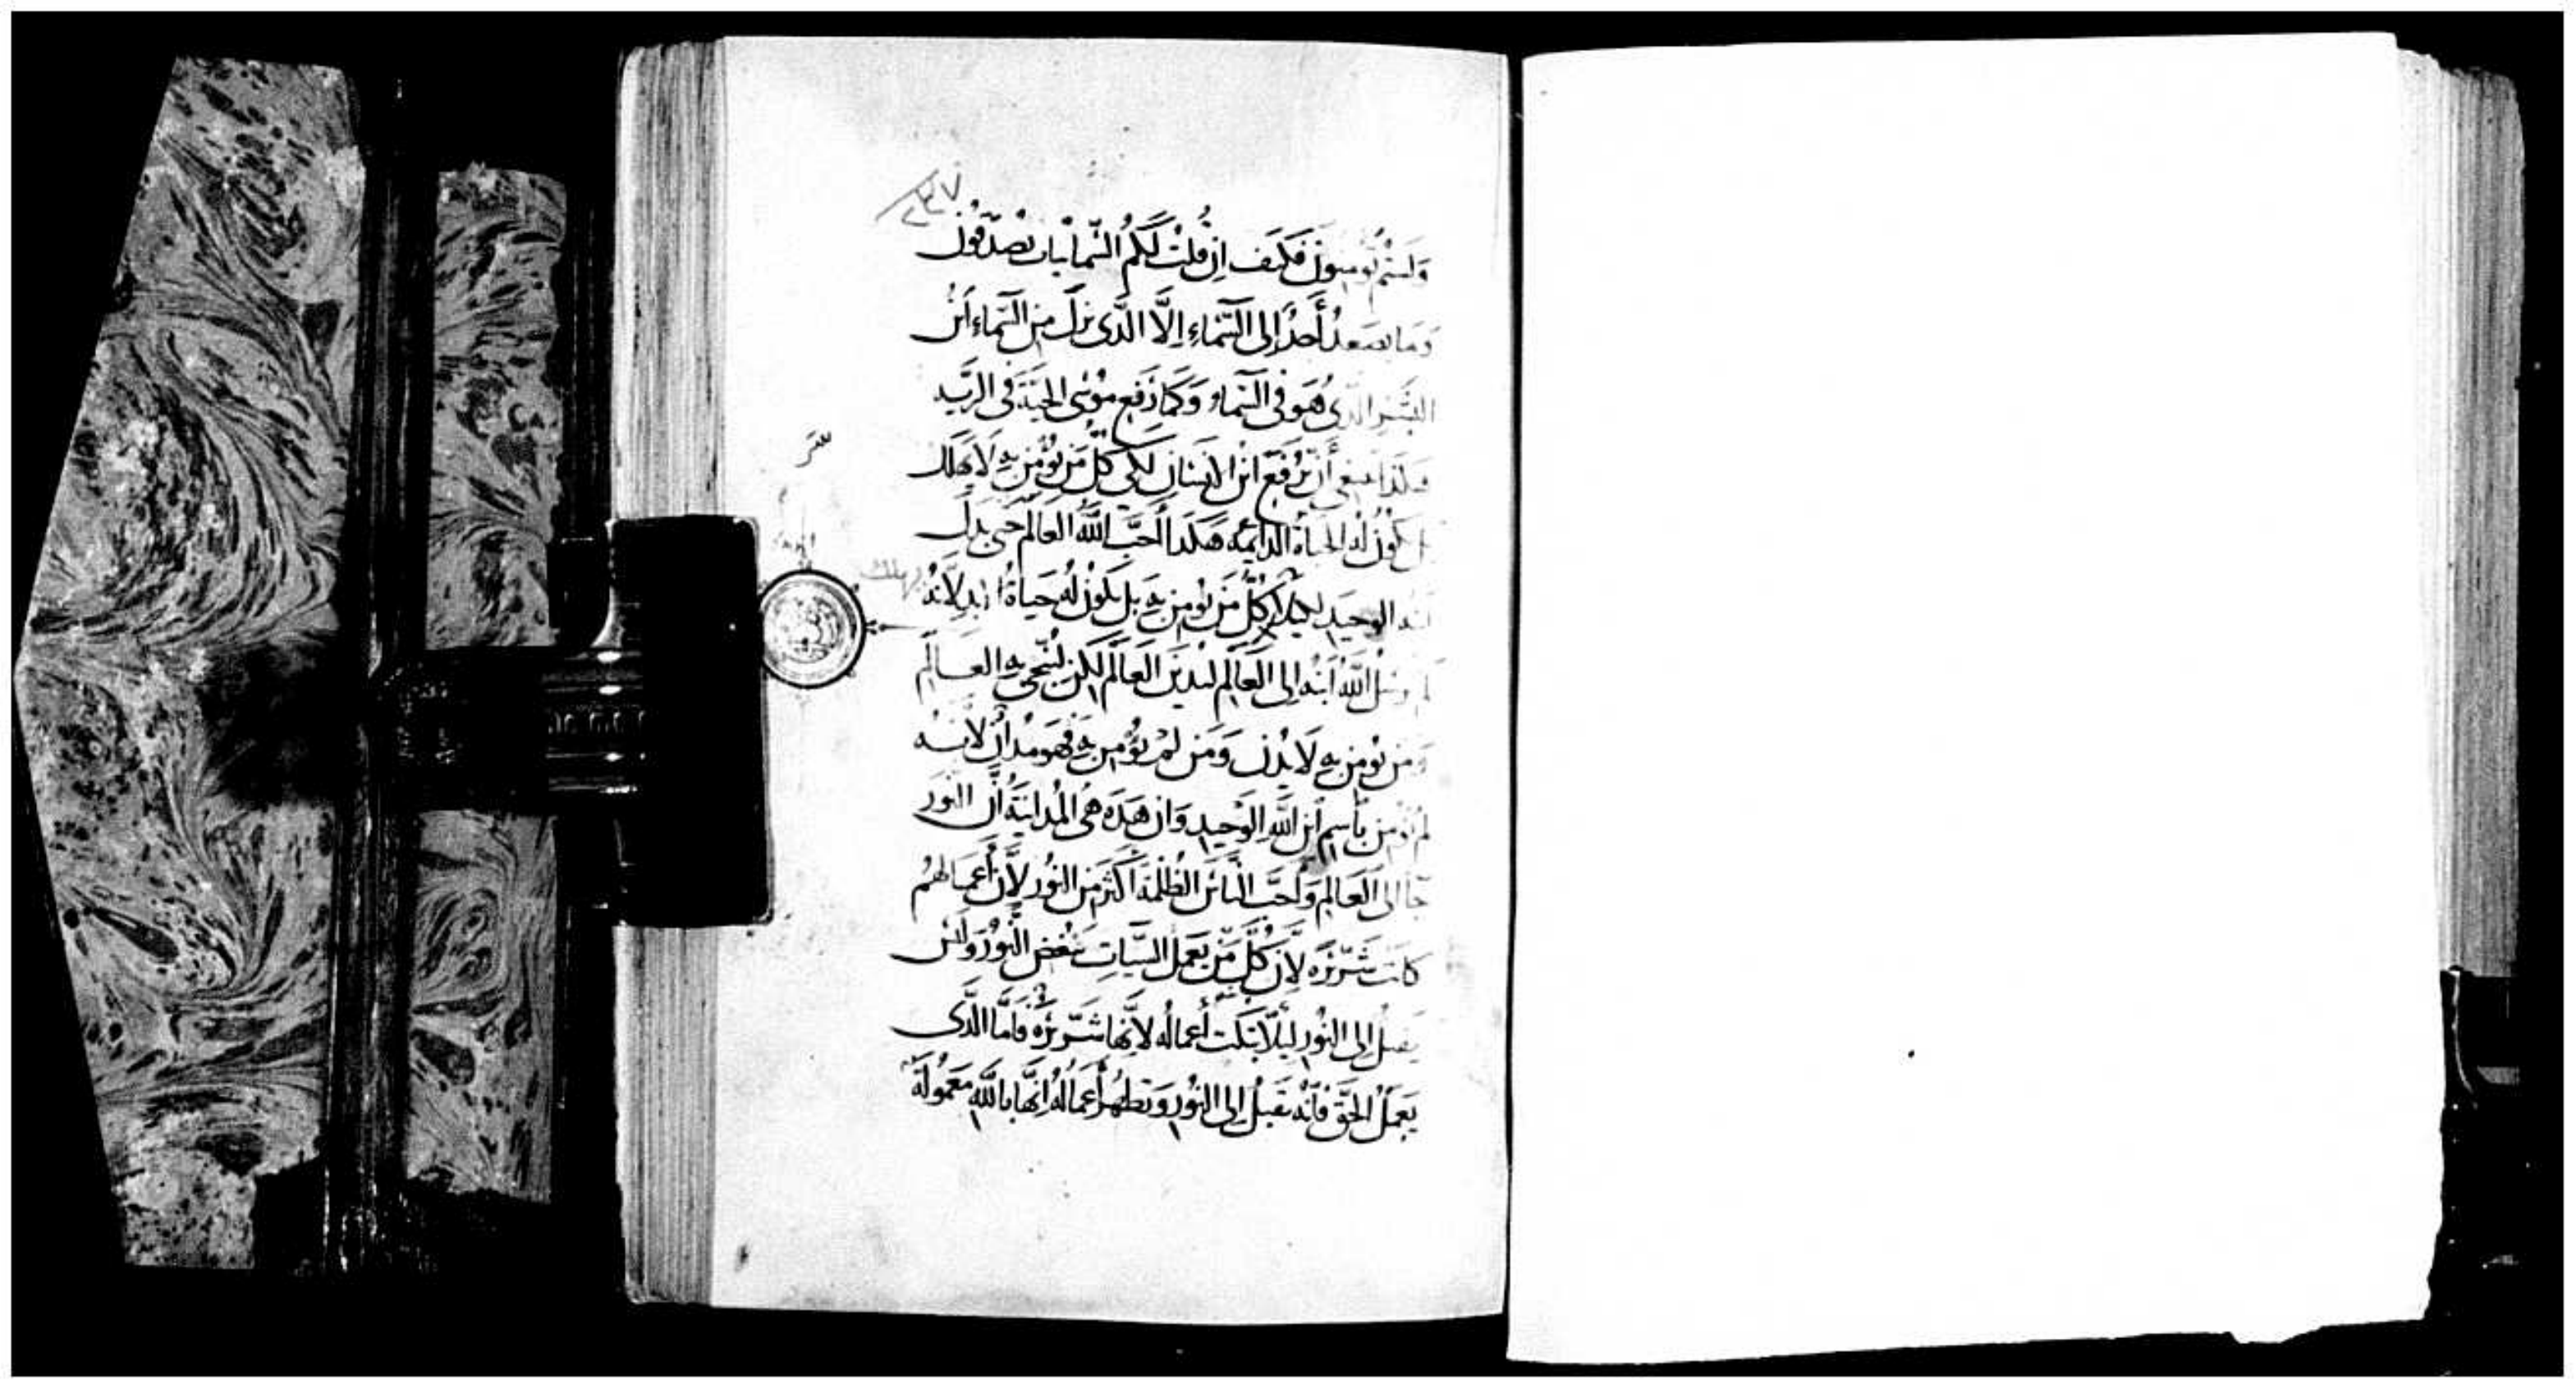 ولستم تؤمنون فكيف ان قلت لكم السمايات تصدقون
وَمَا يصعدُ أَحدٌ إِلى السَّمَاءِ إِلَّا الَّذى نزَل من السَّماءِ ابن
البشر الذى هُوَ فى السَّماء وَكَمَا رَفع مُوسَى الحيَّة فى البريه
هكذا ينبغى أَن يُرفع ابن الانسان لكى كلُّ مَن يؤمن به لا يَهلك
بل تكون له الحياة الدائمه هكذا أَحبّ اللَّه العَالم حتى بذل
ابنه الوحيد ليلا كلُّ مَن يؤمن به بل تكون له حياة الابد لأنه
يهلك
لم يرسل اللَّه ابنه إلى العَالم ليدين العَالَم لكن لينجى به العالم
ومن يؤمن به لَا يُدَن وَمَن لم يؤمن به فهو مدان لأنه
لم يؤمن بأسم ابن اللَّه الوَحيد وَان هَذه هى المُداينَة أَنَّ النور
جا الى العَالم وَأَحبَّ النَّاس الظلمة أَكثر من النور لأَن أَعمالهم
كانت شرّيرة لأَن كلَّ مَن يَعمَل السّيات يبغض النُّور وَليس
يقبل إلى النُّور ليلَّا تبكت أعماله لأنها شرّيرة فامَّا الذى
يَعمَل الحَقَّ فأنه يقبل إلى النُّور وَتظهر أَعمَاله إنَّها باللَّه مَعمُولَة